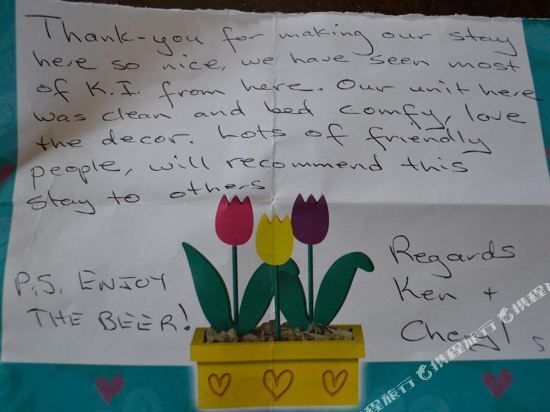 Thank-you for making our stay
here so nice, we have seen most
of K.I. from here. Our unit here
was clean and bed comfy, love
the decor. Lots of friendly
people, will recommend this
stay to others
P.S. ENJOY
THE BEER!
Regards
Ken +
Cheryl
携程旅行
携程旅行